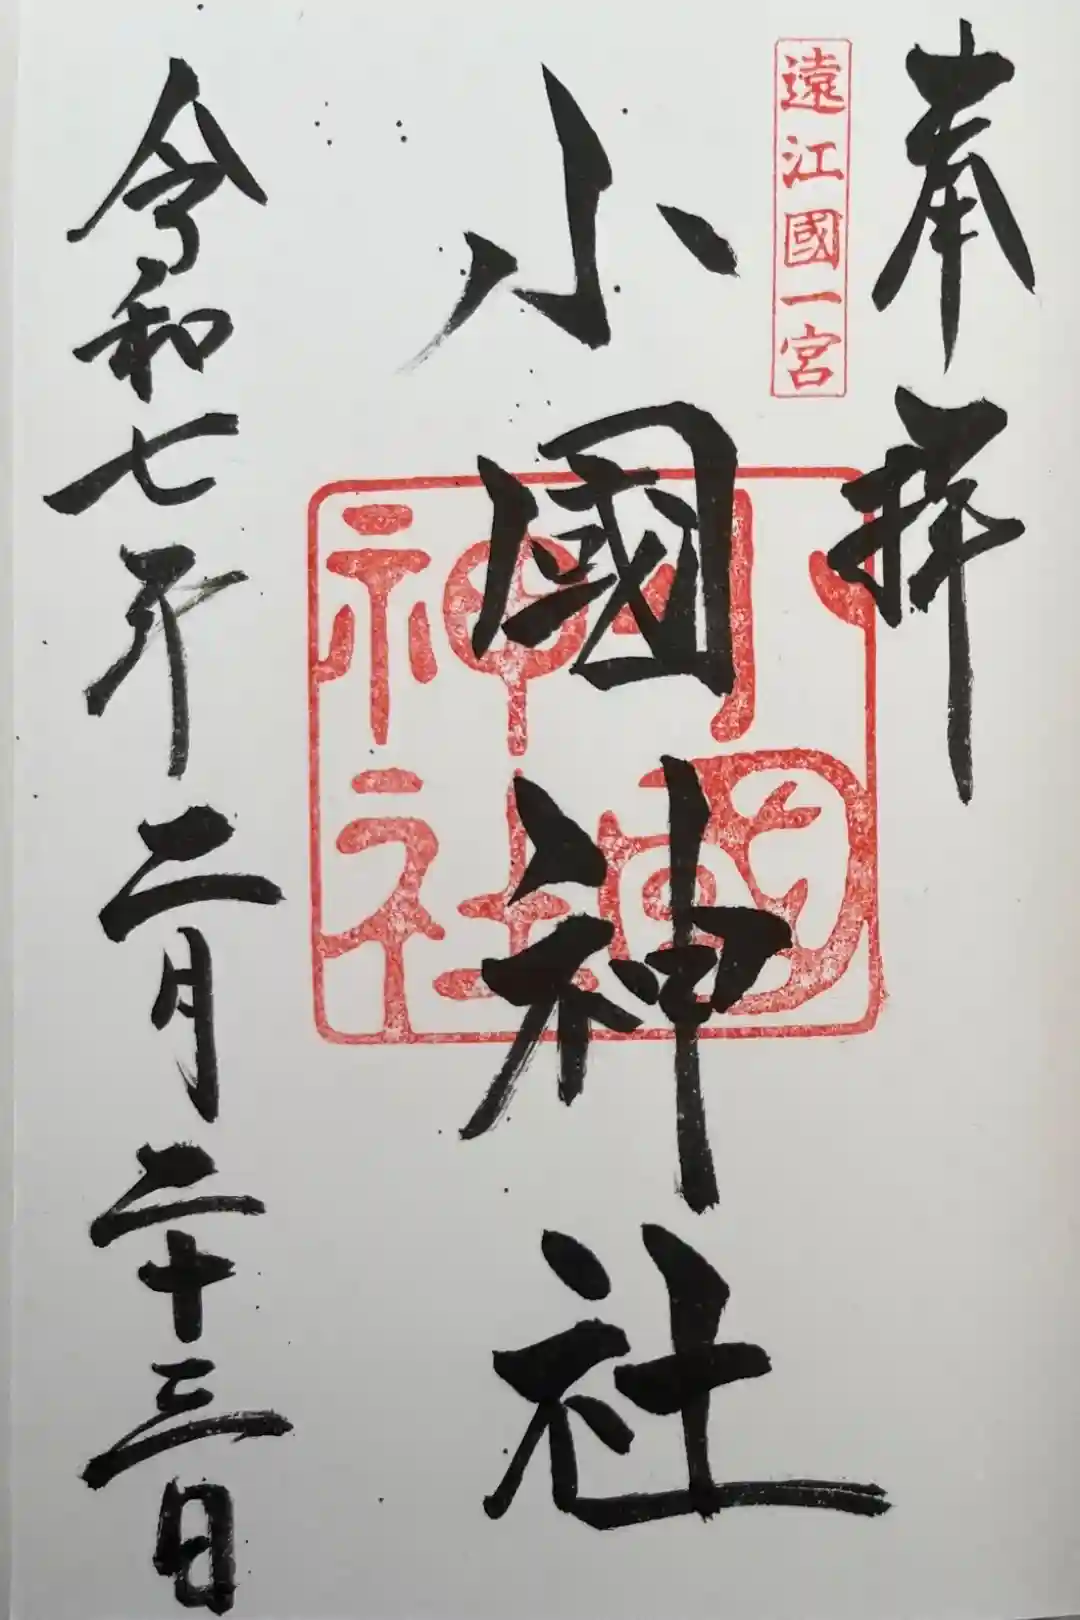 奉拝
遠江國一宮
小國神社
小國神社
令和七年二月二十三日